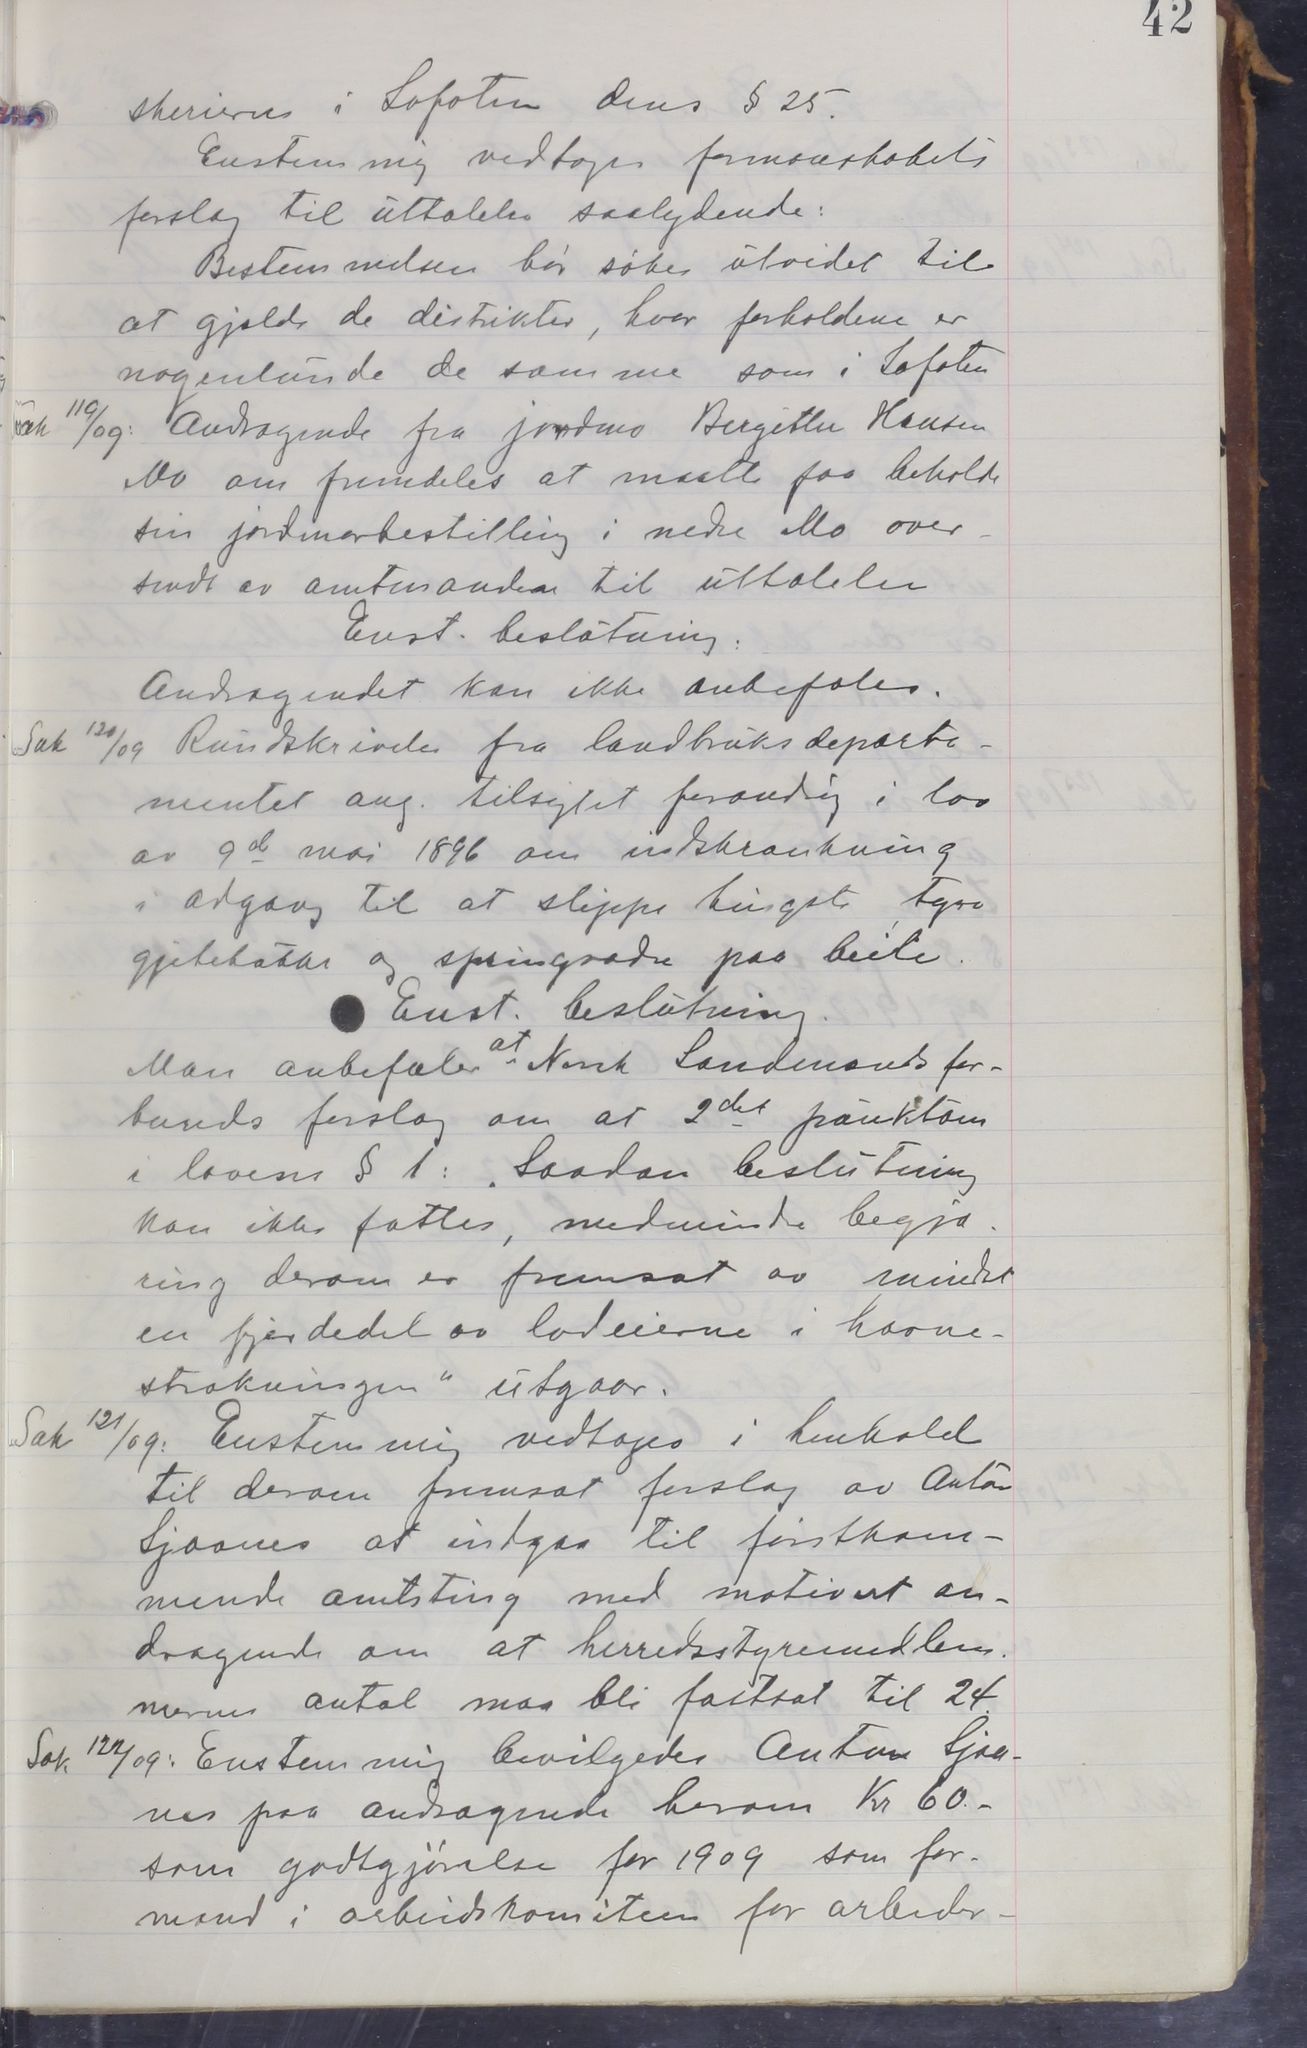 42
skeriene i Lofoten dens § 25.
Enstemmig vedtoges formanskabets
forslag til uttalelse saalydende:
Bestemmelsen bør søkes utvidet til
at gjælde de distrikter, hvor forholdene er
nogenlunde de samme som i Lofoten
Sak 119/09: Andragende fra jordmo Bergitte Hansen
Mo om fremdeles at maatte faa beholde
sin jordmorbestilling i nedre Mo over-
sendt av amtmanden til uttalelse
Enst. beslutning:
Andragendet kan ikke anbefales.
Sak 120/09 Rundskrivelse fra landbruksdeparte-
mentet ang. tilsigtet forandrig i lov
av 9de mai 1896 om indskrænkning
i adgang til at slippe hingste, tyre
gjetebukke og springvædre paa beite.
Enst. beslutning.
Man anbefaler at Norsk Landmandsfor-
bunds forslag om at 2det punktum
i lovens § 1: "Saadan beslutning
kan ikke fattes, medmindre begjæ-
ring derom er fremsat av mindst
en fjerdedel av lodeierne i havne-
strækningen" utgaar.
Sak 121/09: Enstemmig vedtages i henhold
til derom fremsat forslag av Anton
Sjaanes at indgaa til førstkom-
mende amtsting med motivert an-
dragende om at herredsstyremedlem-
mernes antal maa bli fastsat til 24.
Sak 122/09: Enstemmig bevilgedes Anton Sjaa-
nes paa andragende herom Kr 60.-
som godtgjørelse for 1909 som for-
mand i arbeidskomiteen for arbeider-